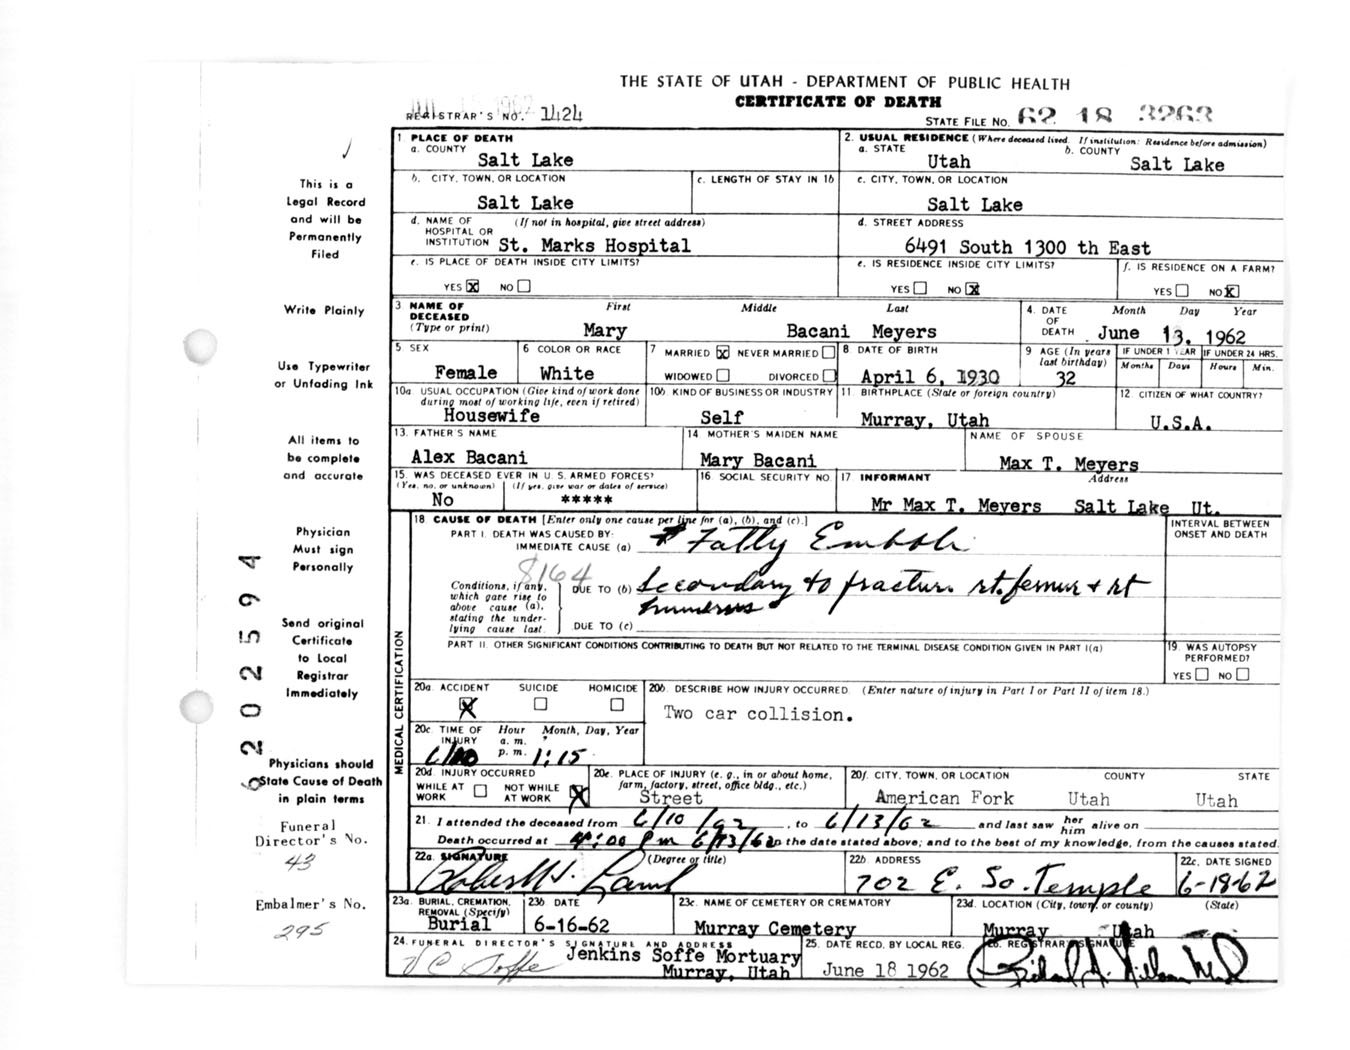 THE STATE OF UTAH - DEPARTMENT OF PUBLIC HEALTH
CERTIFICATE OF DEATH
REGISTRAR'S NO. 1424
STATE FILE NO. 62 18 3263
1. PLACE OF DEATH
a. COUNTY
Salt Lake
2. USUAL RESIDENCE (Where deceased lived. If institution: Residence before admission)
a. STATE b. COUNTY
Utah Salt Lake
b. CITY, TOWN, OR LOCATION
Salt Lake
c. LENGTH OF STAY IN 1b
c. CITY, TOWN, OR LOCATION
Salt Lake
d. NAME OF HOSPITAL OR INSTITUTION (If not in hospital, give street address)
St. Marks Hospital
d. STREET ADDRESS
6491 South 1300 th East
e. IS PLACE OF DEATH INSIDE CITY LIMITS?
YES X NO
e. IS RESIDENCE INSIDE CITY LIMITS?
YES NO X
f. IS RESIDENCE ON A FARM?
YES NO X
3 NAME OF DECEASED (Type or print)
First Middle Last
Mary Bacani Meyers
4. DATE OF DEATH Month Day Year
June 13, 1962
5. SEX
Female
6 COLOR OR RACE
White
7 MARRIED X NEVER MARRIED
WIDOWED DIVORCED
8 DATE OF BIRTH
April 6, 1930
9 AGE (In years last birthday)
32
IF UNDER 1 YEAR IF UNDER 24 HRS.
Months Days Hours Min.
10a. USUAL OCCUPATION (Give kind of work done during most of working life, even if retired)
Housewife
10b. KIND OF BUSINESS OR INDUSTRY
Self
11 BIRTHPLACE (State or foreign country)
Murray, Utah
12 CITIZEN OF WHAT COUNTRY?
U.S.A.
13. FATHER'S NAME
Alex Bacani
14 MOTHER'S MAIDEN NAME
Mary Bacani
NAME OF SPOUSE
Max T. Meyers
15. WAS DECEASED EVER IN U.S. ARMED FORCES?
(Yes, no, or unknown) (If yes, give war or dates of service)
No *****
16 SOCIAL SECURITY NO.
17 INFORMANT Address
Mr Max T. Meyers Salt Lake Ut.
18 CAUSE OF DEATH [Enter only one cause per line for (a), (b), and (c).]
PART I. DEATH WAS CAUSED BY:
IMMEDIATE CAUSE (a) Fatty Emboli
8164
Conditions, if any, which gave rise to above cause (a), stating the underlying cause last.
DUE TO (b) Secondary to fracture rt. femur + rt
humerus
DUE TO (c)
INTERVAL BETWEEN ONSET AND DEATH
PART II. OTHER SIGNIFICANT CONDITIONS CONTRIBUTING TO DEATH BUT NOT RELATED TO THE TERMINAL DISEASE CONDITION GIVEN IN PART I(a)
19. WAS AUTOPSY PERFORMED?
YES NO
MEDICAL CERTIFICATION
20a. ACCIDENT SUICIDE HOMICIDE
X
20b. DESCRIBE HOW INJURY OCCURRED. (Enter nature of injury in Part I or Part II of item 18.)
Two car collision.
20c. TIME OF INJURY Hour Month, Day, Year
a. m.
p. m. 1:15
20d. INJURY OCCURRED
WHILE AT WORK NOT WHILE AT WORK X
20e. PLACE OF INJURY (e. g., in or about home, farm, factory, street, office bldg., etc.)
Street
20f. CITY, TOWN, OR LOCATION COUNTY STATE
American Fork Utah Utah
21. I attended the deceased from 6/10/62, to 6/13/62 and last saw her him alive on
Death occurred at 4:00 pm 6/13/62 on the date stated above; and to the best of my knowledge, from the causes stated.
22a. SIGNATURE (Degree or title)
Robert H. Lamb
22b. ADDRESS
702 E. So. Temple
22c. DATE SIGNED
6-18-62
23a. BURIAL, CREMATION, REMOVAL (Specify)
Burial
23b. DATE
6-16-62
23c. NAME OF CEMETERY OR CREMATORY
Murray Cemetery
23d. LOCATION (City, town, or county) (State)
Murray Utah
24. FUNERAL DIRECTOR'S SIGNATURE AND ADDRESS
V C Soffe Jenkins Soffe Mortuary
Murray, Utah
25. DATE RECD. BY LOCAL REG.
June 18 1962
26. REGISTRAR'S SIGNATURE
This is a
Legal Record
and will be
Permanently
Filed
Write Plainly
Use Typewriter
or Unfading Ink
All items to
be complete
and accurate
Physician
Must sign
Personally
Send original
Certificate
to Local
Registrar
Immediately
Physicians should
State Cause of Death
in plain terms
Funeral
Director's No.
43
Embalmer's No.
295
6202594